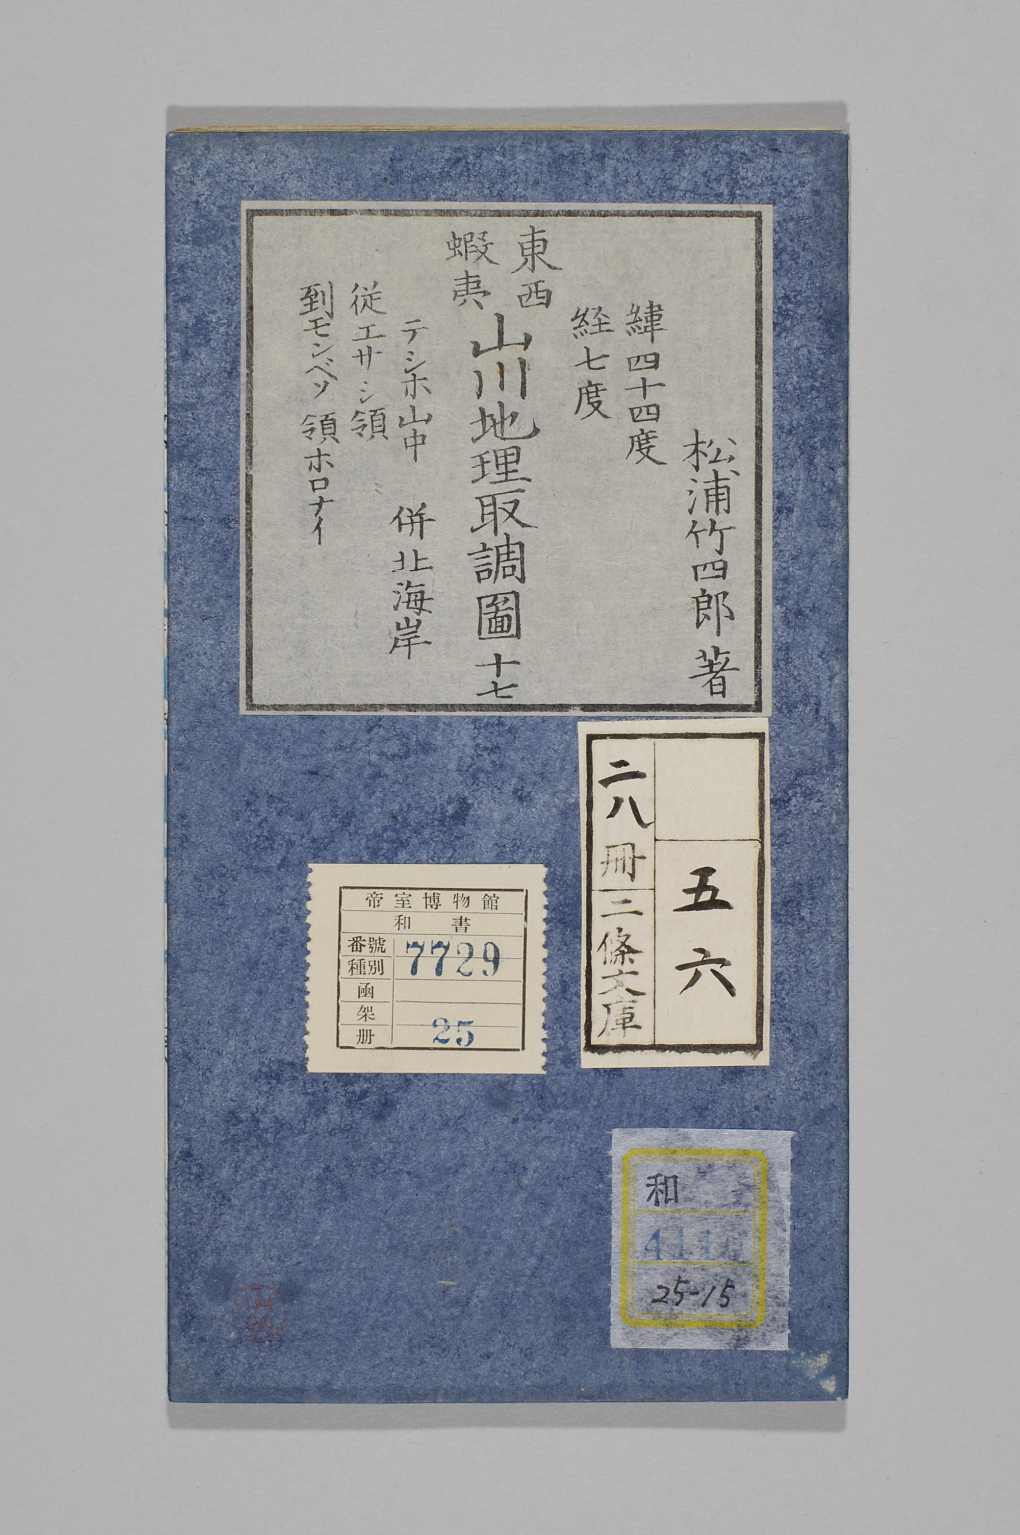 松浦竹四郎 著
緯四十四度
経七度
東西
蝦夷
山川地理取調圖 十七
テシホ山中 併北海岸
従エサシ領
到モンベツ領ホロナイ
五六
二八冊
二條文庫
帝室博物館
和書
番號 7729
種別
函
架
册 25
和
25-15